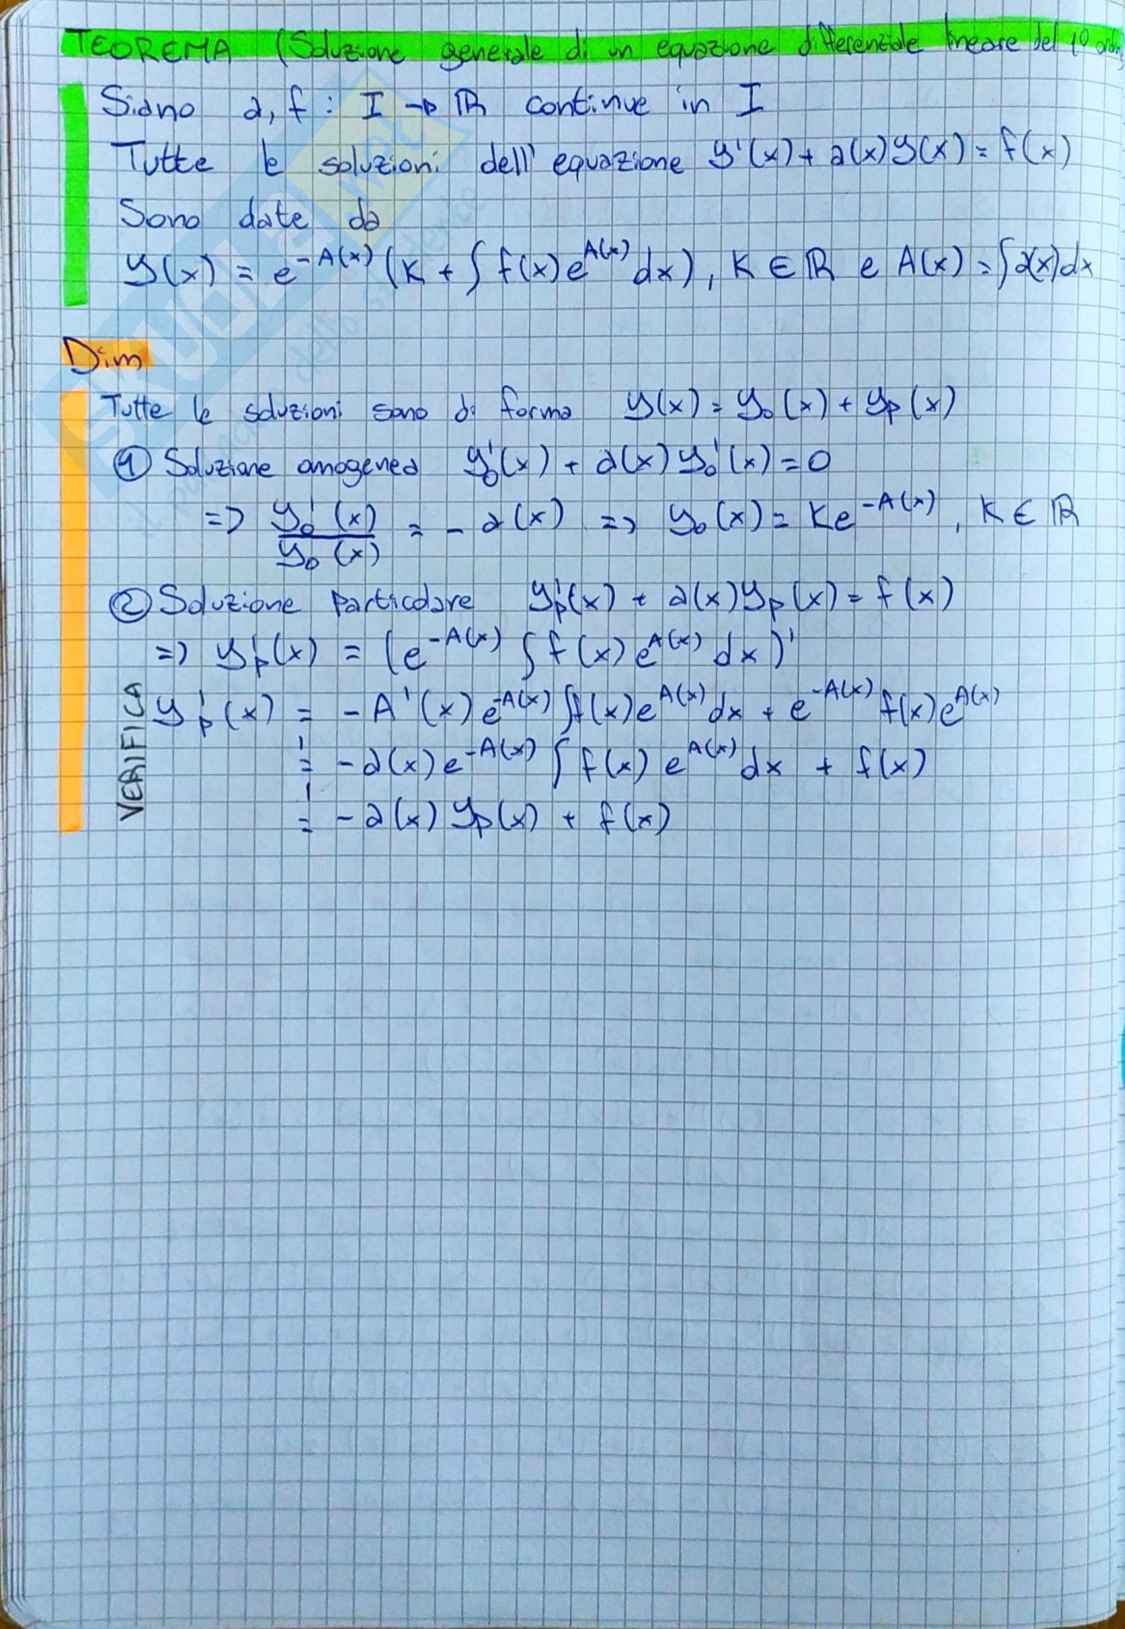 TEOREMA (Soluzione generale di un equazione differenziale lineare del 1º
Siano a, f : I → ℝ continue in I
Tutte le soluzioni dell'equazione y'(x) + a(x)y(x) = f(x)
Sono date da
y(x) = e^{-A(x)} (K + ∫ f(x)e^{A(x)} dx), K ∈ ℝ e A(x) = ∫a(x)dx
Dim
Tutte le soluzioni sono di forma y(x) = y₀(x) + yₚ(x)
① Soluzione omogenea y₀'(x) + a(x) y₀'(x) = 0
=> y₀'(x)/y₀(x) = - a(x) => y₀(x) = Ke^{-A(x)}, K ∈ ℝ
② Soluzione particolare yₚ'(x) + a(x)yₚ(x) = f(x)
=> yₚ'(x) = (e^{-A(x)} ∫ f(x) e^{A(x)} dx)'
VERIFICA
yₚ'(x) = -A'(x) e^{-A(x)} ∫f(x)e^{A(x)}dx + e^{-A(x)} f(x)e^{A(x)}
= -a(x)e^{-A(x)} ∫ f(x) e^{A(x)}dx + f(x)
= -a(x) yₚ(x) + f(x)